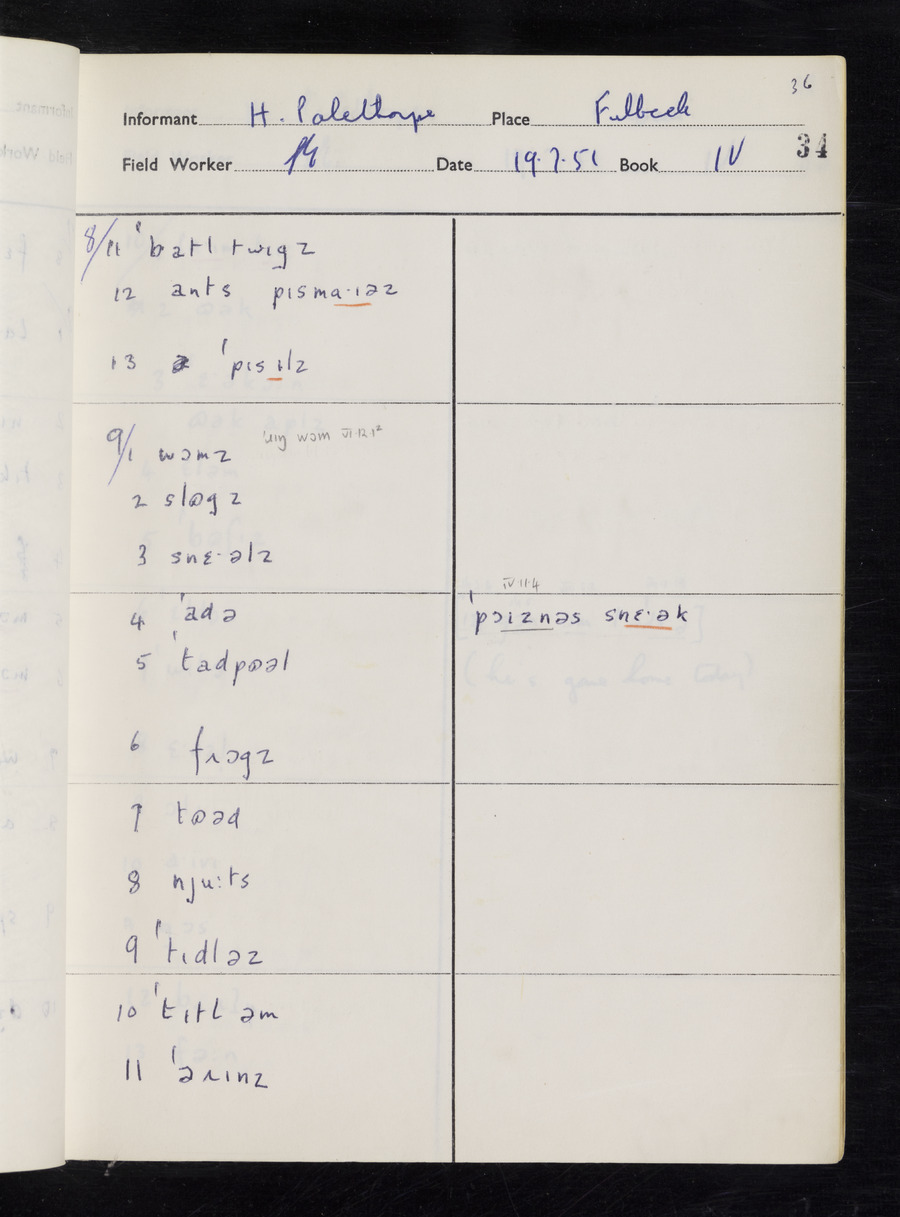 36
Informant H. Palethorpe Place Fulbeck
34
Field Worker Date 19.7.51 Book IV
8/11 ˈbatl twɪgz
12 ants pɪsma·ɪəz
13 ˈpɪsɪlz
9/1 wɔmz ˈɹɪŋ wɔm VI.12.1²
2 slɷgz
3 snɛ·əlz
IV 11.4
4 ˈadə ˈpɔɪznəs snɛ·ək
5 ˈtadpɷəl
6 fɹɔgz
7 tɷəd
8 njuːts
9 ˈtɪdləz
10 ˈtɪtl əm
11 ˈəɹɪnz